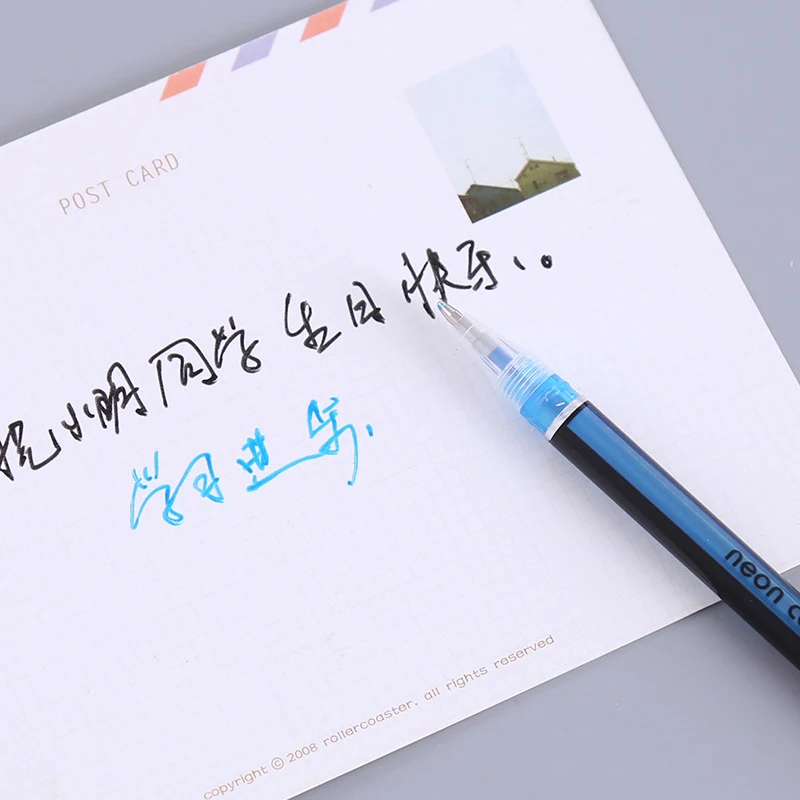 POST CARD
祝小明同学生日快乐!。
学习进步!
neon co
copyright © 2008 rollercoaster. all rights reserved